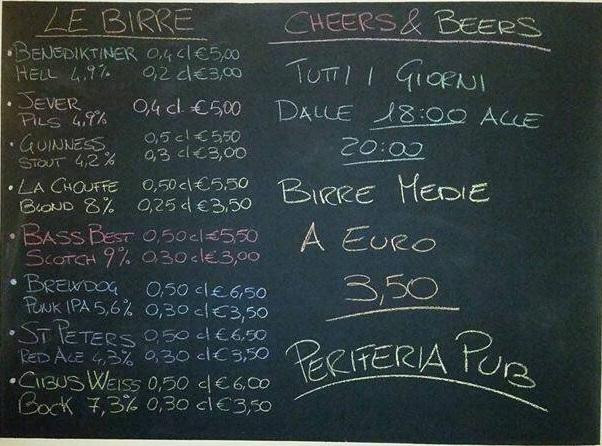 LE BIRRE
• BENEDIKTINER 0,4 cl €5,00
HELL 4,9% 0,2 cl €3,00
• JEVER 0,4 cl €5,00
PILS 4,9%
• GUINNESS 0,5 cl €5,50
STOUT 4,2% 0,3 cl €3,00
• LA CHOUFFE 0,50 cl €5,50
BLOND 8% 0,25 cl €3,50
• BASS BEST 0,50 cl €5,50
SCOTCH 9% 0,30 cl €3,00
• BREWDOG 0,50 cl €6,50
PUNK IPA 5,6% 0,30 cl €3,50
• ST PETERS 0,50 cl €6,50
RED ALE 4,3% 0,30 cl €3,50
• CIBUS WEISS 0,50 cl €6,00
BOCK 7,3% 0,30 cl €3,50
CHEERS & BEERS
TUTTI I GIORNI
DALLE 18:00 ALLE
20:00
BIRRE MEDIE
A EURO
3,50
PERIFERIA PUB